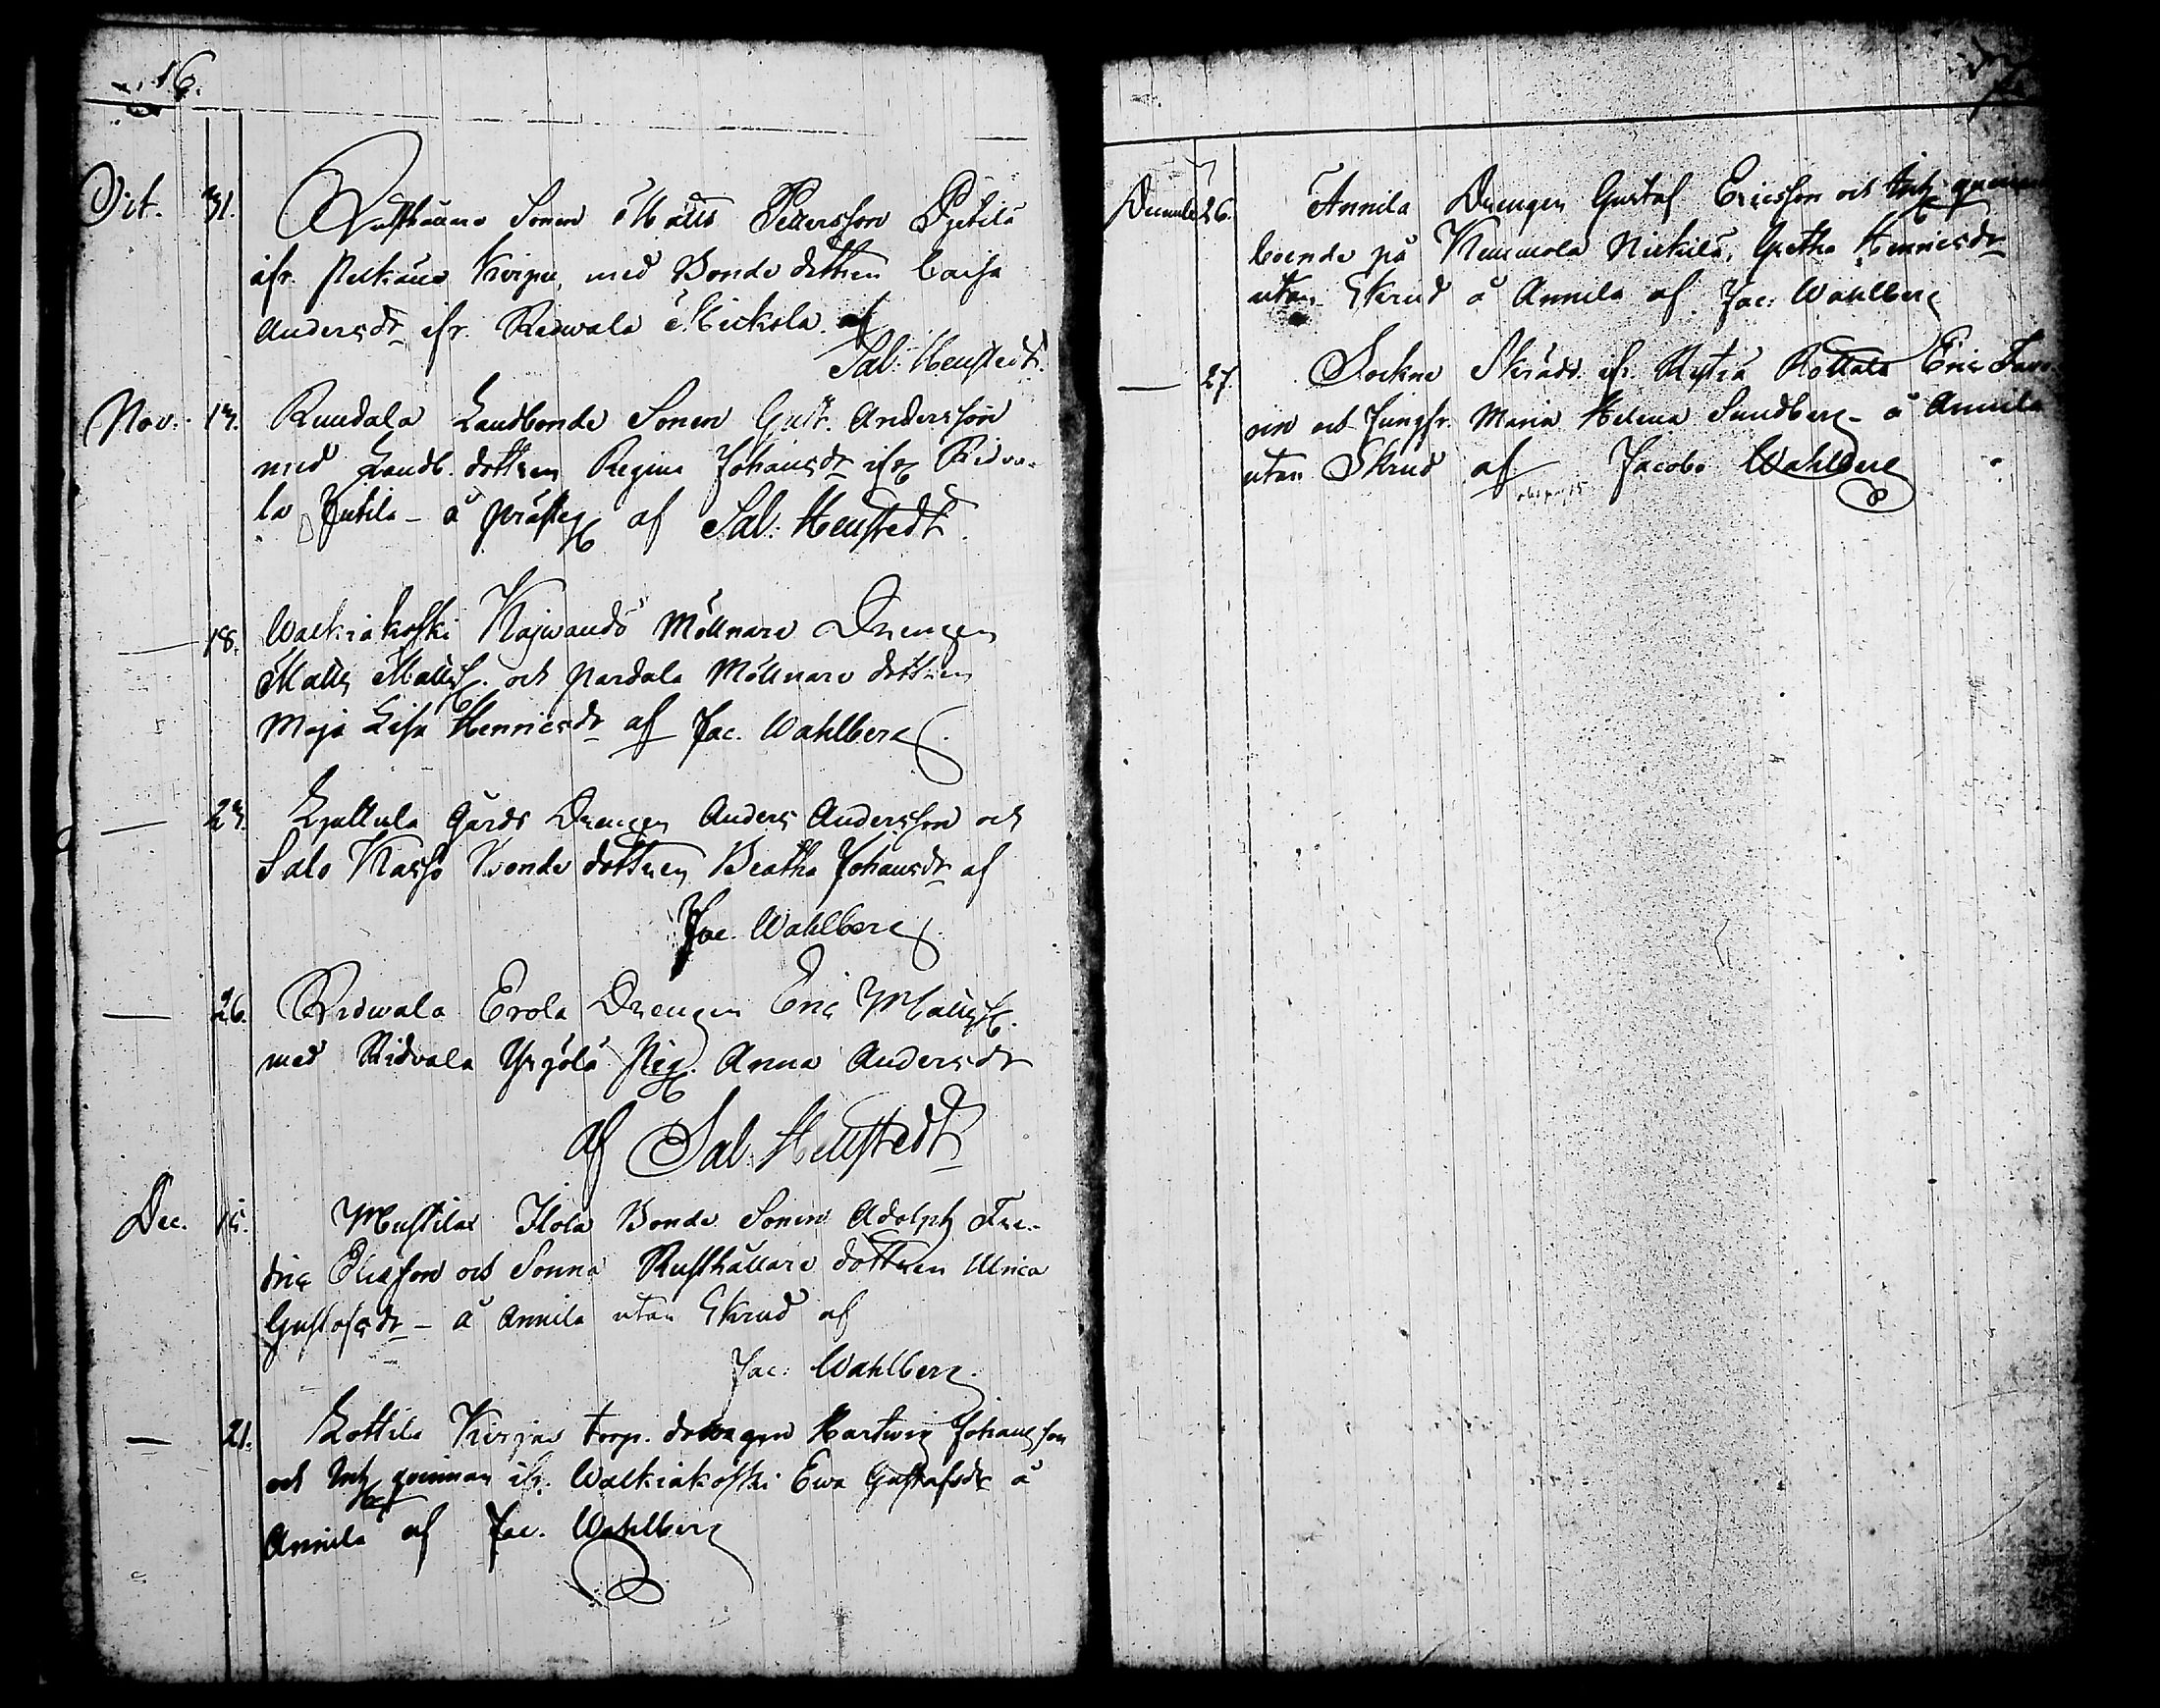 16.
Oct. 31. Rusthållare Sonen Matts Pettersson Pjetilä
ifr. Pelkäne Kirpu, med Bonde dottren Caisa
Andersdr ifr. Ridwala Mickola af
Sal. Heustedt.
Nov. 13. Rundala Landbonde Sonen Gust. Andersson
med Landb. dottren Regina Johansdr ifr Ridva-
la Jutila - å prästeg af Sal. Heustedt.
— 18. Walkiakoski Kajwando Möllnare Drengen
Matts Mattss. och Pardala Möllnare dottren
Maja Lisa Henricsdr af Jac. Wahlberg.
— 23. Gårds Drengen Anders Andersson och
Salo Kasso Bonde dottren Beatha Johansdr af
Jac. Wahlberg.
— 26. Ridwala Erola Drengen Eric Mattss.
med Ridvala Yrjölä Pig. Anna Andersdr
af Sal. Heustedt
Dec. 15. Mustila Ilola Bonde Sonen Adolph Fre-
dric Ericsson och Sonna Rusthållare dottren Ulrica
Gustafsdr - å Annila utan Skrud af
Jac. Wahlberg.
— 21. Lottila torp. Hartwig Johansson
och Inh. qvinnan ifr. Walkiakoski Ewa Gustafsdr å
Annila af Jac. Wahlberg
December 26. Annila Drengen Gustaf Ericsson och Inh. qvinnan
boende på Kemmola Nickilä, Gretha Henricsdr
utan Skrud å Annila af Jac. Wahlberg
— 27. Sockne Skrädd. ifr. Rottala Eric
och Jungfr. Maria Helena Sundberg - å Annila
utan Skrud af Jacob Wahlberg